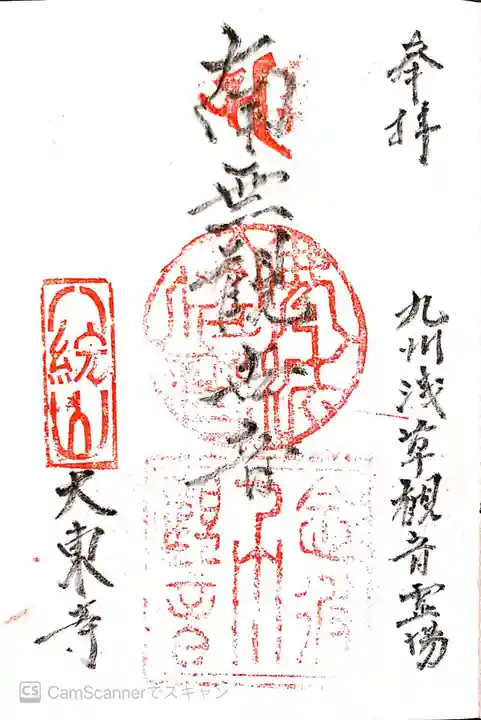 奉拝
九州浅草観音霊場
南無観世音
八統山
大東寺
CS CamScannerでスキャン